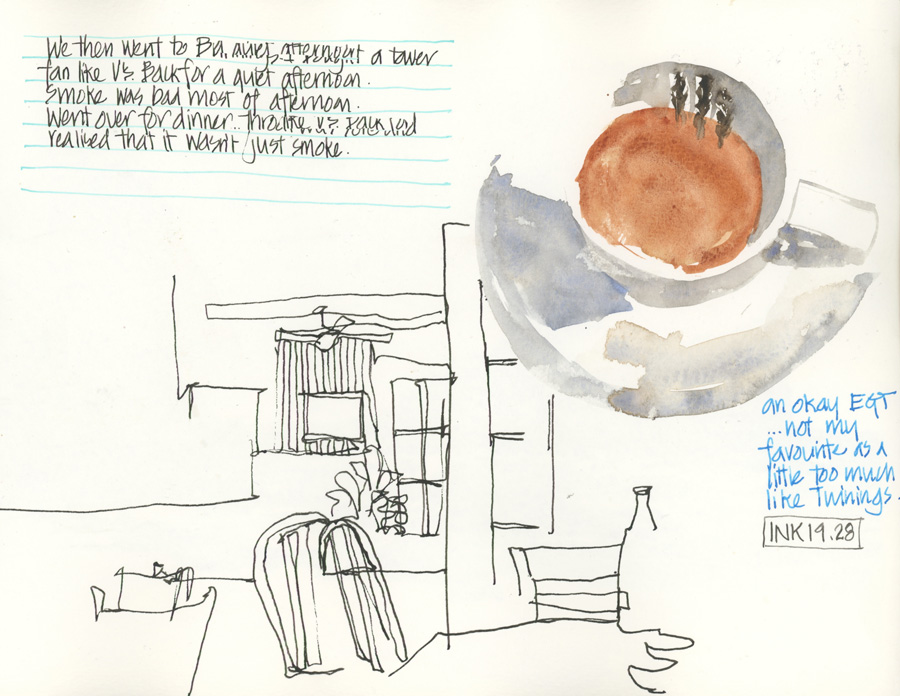 We then went to Ba, a tower
fan like V's. Back for a quiet afternoon.
Smoke was bad most of afternoon.
Went over for dinner..
realised that it wasn't just smoke.
an okay EGT
...not my
favourite as a
little too much
like Twinings.
INK19.28